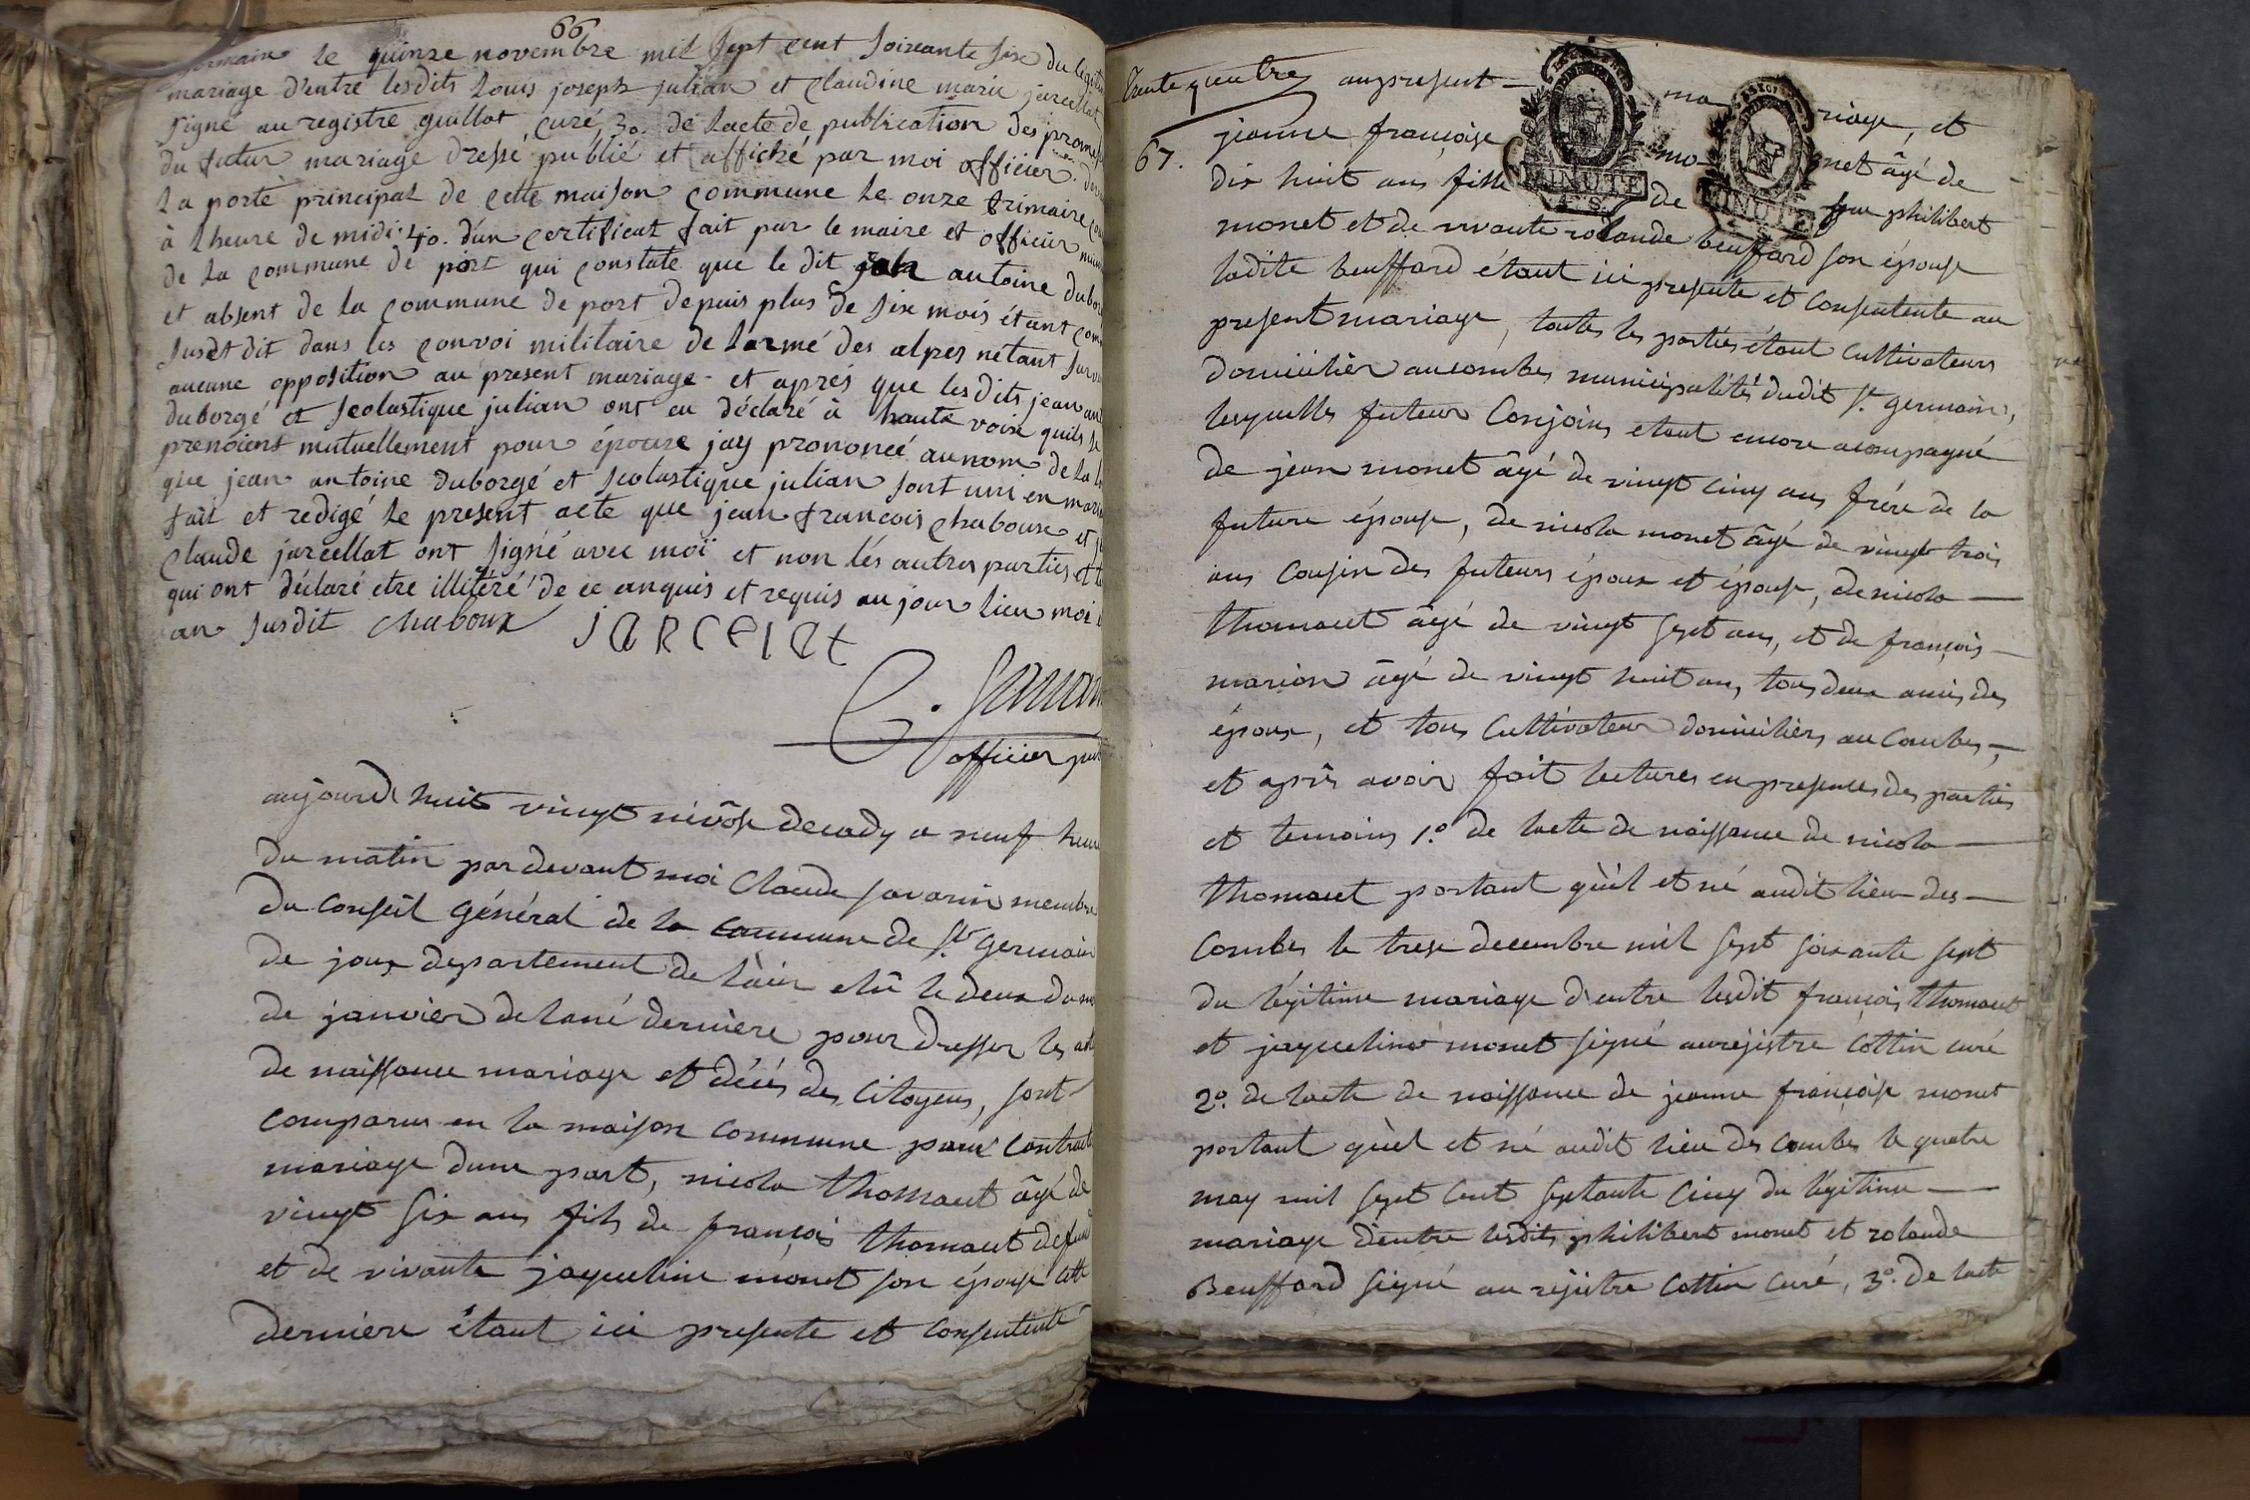 66
germain le quinze novembre mil sept cent soixante six du legitim
mariage d'entre lesdits louis joseph julian et claudine marie jarcellat
signé au registre guillot, curé, 3o. de lacte de publication des promes
du futur mariage dressé publié et affiché par moi officier devan
la porte principal de cette maison commune le onze frimaire cou
à lheure de midi. 4o. d'un certificat fait par le maire et officier muni
de la commune de port qui constate que le dit jean antoine dubor
et absent de la commune de port depuis plus de six mois étant com
susdt dit dans les convoi militaire de larmé des alpes nétant surve
aucune opposition au present mariage - et aprés que lesdits jean an
duborgé et scolastique julian ont eu déclaré à haute voix quils se
prenoient mutuellement pour épouse jay prononcé au nom de la l
que jean antoine duborgé et scolastique julian sont uni en maria
fait et redigé le present acte que jean francois chaboux et j
claude jarcellat ont signé avec moi et non lés autres parties et te
qui ont déclaré etre illitéré de ce anquis et requis au jour lieu moi e
an susdit chaboux jarcelat
C. savarin
officier pub
aujourdhuit vingt nivôse decady a neuf heure
du matin pardevant moi Claude savarin membre
du conseil général de la commune de st germain
de joux departement de l'ain elû le deux du moi
de janvier de lané derniere pour dresser les act
de naissance mariage et décés des Citoyens, sont
comparus en la maison commune pour contracte
mariage dune part, nicola thomaset âgé de
vingt six ans fils de françois thomaset defunt
et de vivante jaqueline monet son épouse cette
derniere étant ici presente et consentente
trante quatre au present ma riage, et
67. jeanne françoise mo net âgé de
dix huit ans fille de feu philibert
monet et de vivante rolande beuffard son épouse
ladite beuffard étant ici presente et consentente au
present mariage, toutes les parties étant cultivateurs
domiciliér aucombes municipalité dudit st germain,
lesquelles futeur Conjoins etant encore acompagné
de jean monet âgé de vingt cinq ans frére de la
future épouse, de nicola monet âgé de vingt trois
ans cousin des futeurs époux et épouse, de nicola
thomaset âgé de vingt sept ans, et de françois
marion âgé de vingt huit ans, tous deux amis des
époux, et tous Cultivateur domiciliers au Combes,
et aprés avoir fait lectures en presences des parties
et temoins 1o. de lacte de naissance de nicola
thomaset portant qu'il et né audit lieu des
Combes le trese decembre mil sept soixante sept
du légitime mariage d'entre lesdit françois thomaset
et jaqueline monet signé auregistre Cottin curé
2o. de lacte de naissance de jeanne françoise monet
portant qu'el et né audit lieu des combes le quatre
may mil sept cent septante cinq du légitime
mariage dentre lesdits philibert monet et rolande
Beuffard signé au rejistre Cottin Curé, 3o. de lacte